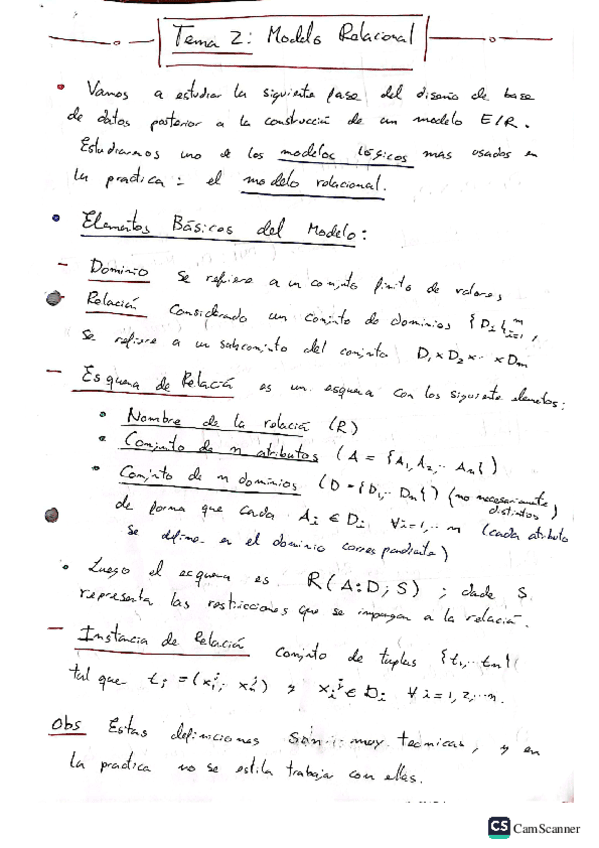 Tema 2: Modelo Relacional
• Vamos a estudiar la siguiente fase del diseño de base
de datos posterior a la construcción de un modelo E/R.
Estudiaremos uno de los modelos lógicos mas usados en
la practica: el modelo relacional.
• Elementos Básicos del Modelo:
- Dominio se refiere a un conjunto finito de valores
Relación Considerado un conjunto de dominios {Di}ᵐi=1,
se refiere a un subconjunto del conjunto D1 x D2 x ·· x Dm
- Esquema de Relación es un esquema con los siguiente elementos:
• Nombre de la relación (R)
• Conjunto de n atributos (A = {A1, A2, ·· An})
• Conjunto de n dominios (D = {D1, ·· Dn}) (no necesariamente distintos)
de forma que cada Ai ∈ Di ∀i=1,·· n (cada atributo
se define en el dominio correspondiente)
• Luego el esquema es R(A:D; S) ; donde S
representa las restricciones que se impongan a la relación.
- Instancia de Relación conjunto de tuplas {t1, ·· tm}
tal que tj = (x1ʲ; xnʲ) y xiʲ ∈ Di ∀ i = 1, 2, ·· n.
Obs Estas definiciones son muy tecnicas, y en
la practica no se estila trabajar con ellas.
CS CamScanner